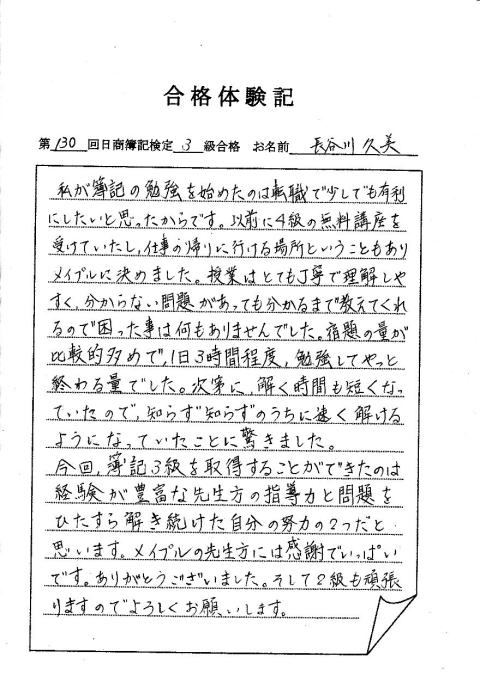 合格体験記
第 130 回日商簿記検定 3 級合格 お名前 長谷川 久美
私が簿記の勉強を始めたのは転職で少しでも有利
にしたいと思ったからです。以前に4級の無料講座を
受けていたし、仕事の帰りに行ける場所ということもあり
メイプルに決めました。授業はとても丁寧で理解しや
すく、分からない問題があっても分かるまで教えてくれ
るので困った事は何もありませんでした。宿題の量が
比較的多めで、1日3時間程度、勉強してやっと
終わる量でした。次第に、解く時間も短くなっ
ていたので、知らず知らずのうちに速く解ける
ようになっていたことに驚きました。
今回、簿記3級を取得することができたのは
経験が豊富な先生方の指導力と問題を
ひたすら解き続けた自分の努力の2つだと
思います。メイプルの先生方には感謝でいっぱい
です。ありがとうございました。そして2級も頑張
りますのでよろしくお願いします。